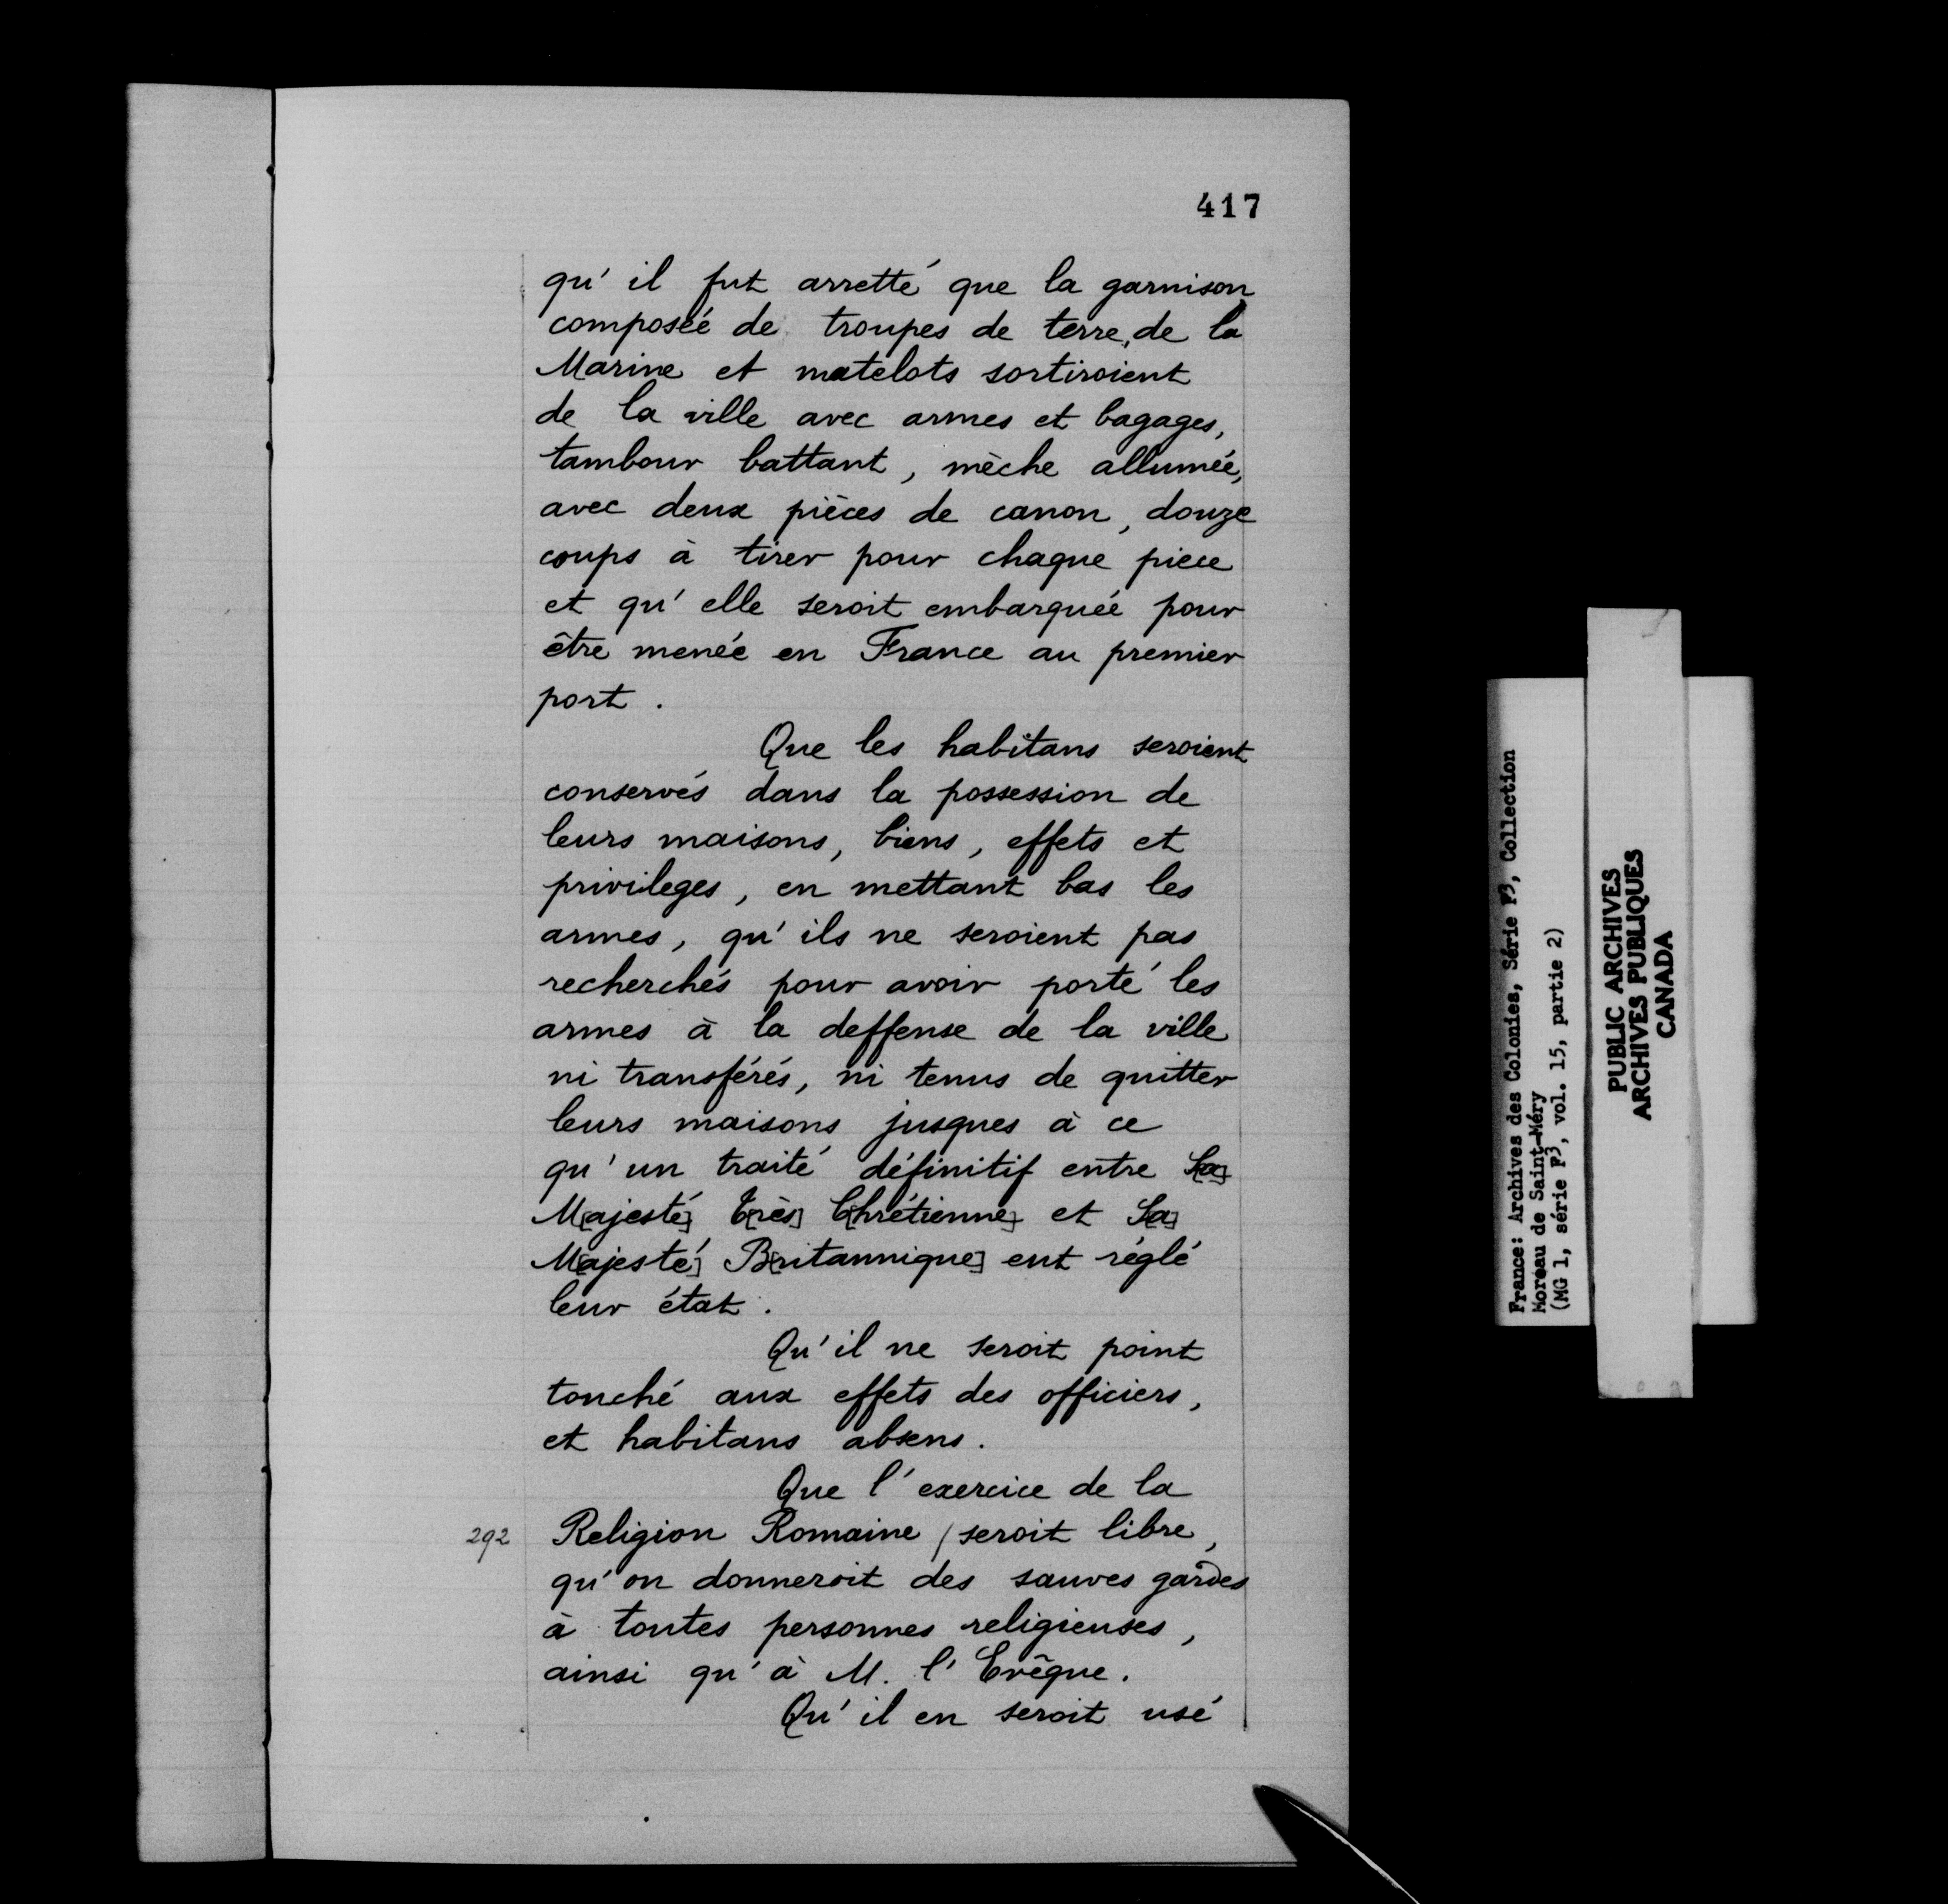 417
qu'il fut arretté que la garnison
composéé de troupes de terre, de la
Marine et matelots sortiroient
de la ville avec armes et bagages,
tambour battant, mèche allumée,
avec deux pièces de canon, douze
coups à tirer pour chaque piece
et qu'elle seroit embarquée pour
être menée en France au premier
port.
Que les habitans seroient
conservés dans la possession de
leurs maisons, biens, effets et
privileges, en mettant bas les
armes, qu'ils ne seroient pas
recherchés pour avoir porté les
armes à la deffense de la ville
ni transférés, ni tenus de quitter
leurs maisons jusques à ce
qu'un traité définitif entre S[a]
M[ajesté] T[rès] C[hrétienne] et S[a]
M[ajesté] B[ritannique] eut réglé
leur état.
Qu'il ne seroit point
touché aux effets des officiers,
et habitans absens.
Que l'exercice de la
292 Religion Romaine / seroit libre,
qu'on donneroit des sauves gardes
à toutes personnes religieuses,
ainsi qu'à M. l'Evêque.
Qu'il en seroit usé
France: Archives des Colonies, Série F3, Collection
Moreau de Saint-Méry
(MG 1, série F3, vol. 15, partie 2)
PUBLIC ARCHIVES
ARCHIVES PUBLIQUES
CANADA